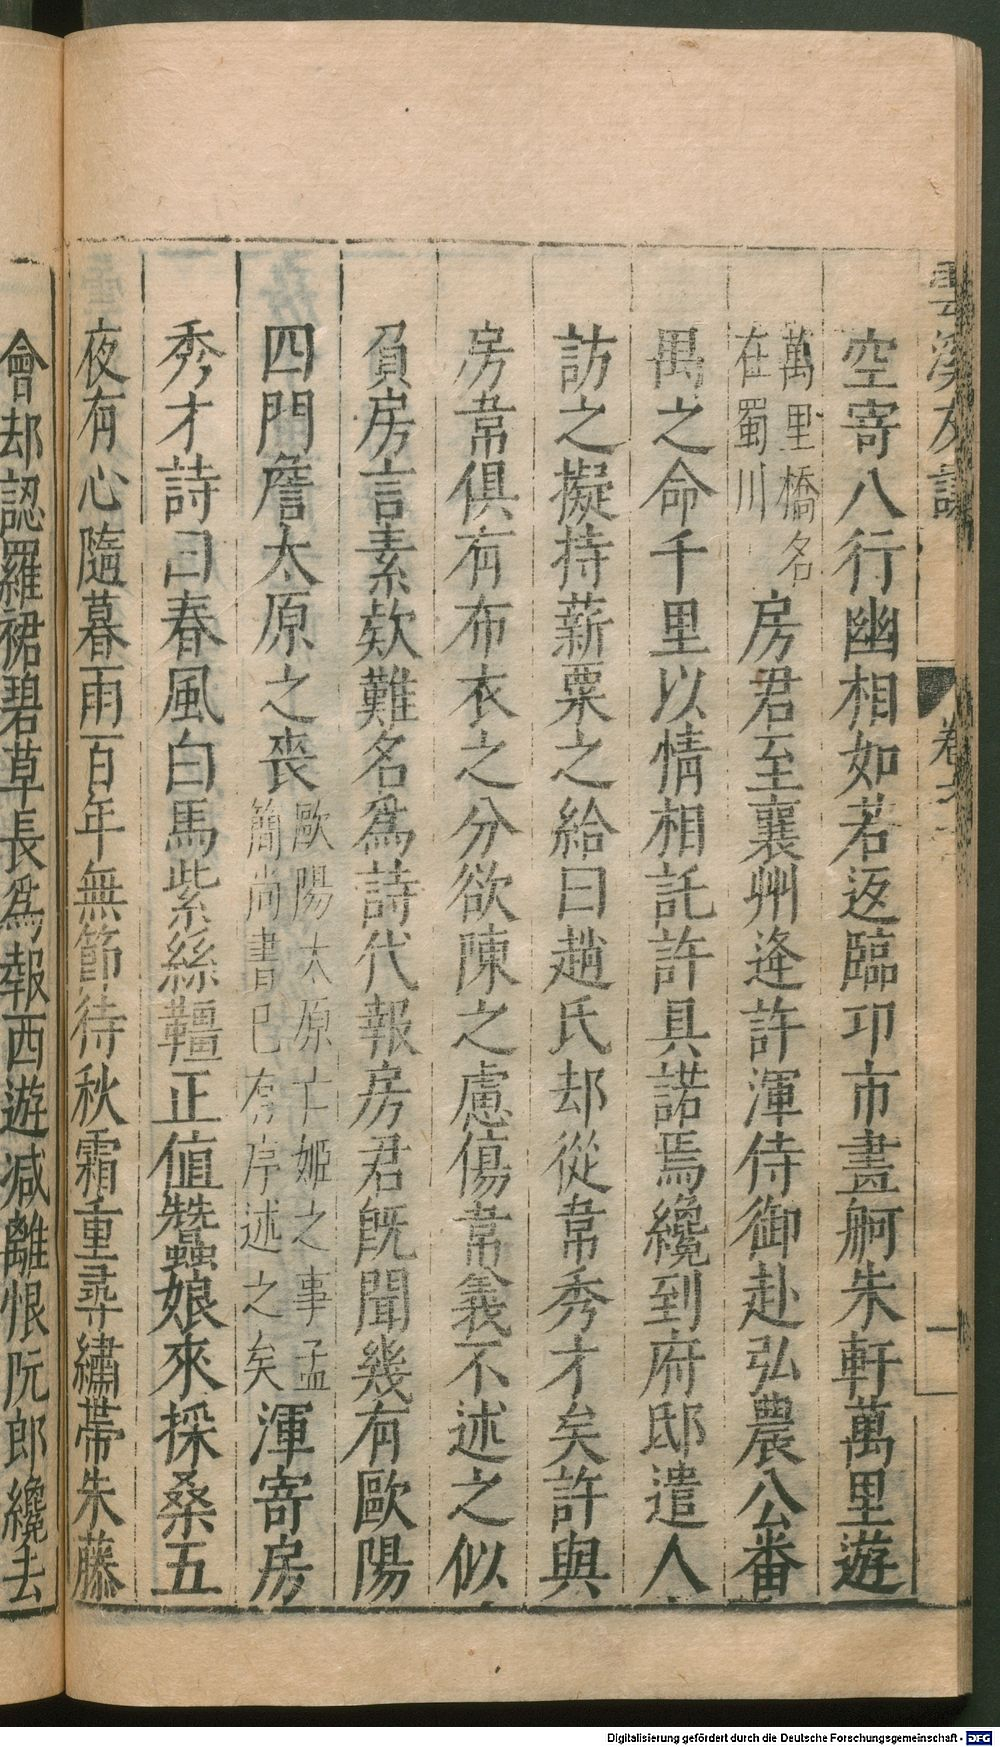 雲溪友議
卷六
一
空寄八行幽相如若返臨邛市畫舸朱軒萬里遊
萬里橋名
在蜀川
房君至襄州逢許渾侍御赴弘農公番
禺之命千里以情相託許具諾焉纔到府邸遣人
訪之擬持薪粟之給曰趙氏却從韋秀才矣許與
房韋俱有布衣之分欲陳之慮傷韋義不述之似
負房言素欵難名爲詩代報房君旣聞幾有歐陽
四門詹太原之喪
歐陽太原亡姬之事孟
簡尚書已有序述之矣
渾寄房
秀才詩曰春風白馬紫絲韁正值蠶娘來採桑五
夜有心隨暮雨百年無節待秋霜重尋繡帶朱藤
會却認羅裙碧草長爲報西遊減離恨阮郎纔去
Digitalisierung gefördert durch die Deutsche Forschungsgemeinschaft - DFG